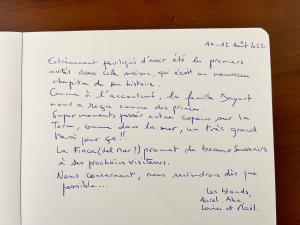 10-12 Août 2022
Extrêmement privilégiés d'avoir été les premiers
invités dans cette maison, qui écrit un nouveau
chapitre de son histoire.
Comme à l'accoutumé, la famille Bayart
nous a reçu comme des princes.
Supers moments passés entre copains sur la
Terre, comme dans la mer, un très grand
Merci pour ça!!
La Finca (del Mar?) promet de beaux souvenirs
à ses prochains visiteurs.
Nous concernant, nous reviendrons dès que
possible...
Les
Aurel,
et Maël.